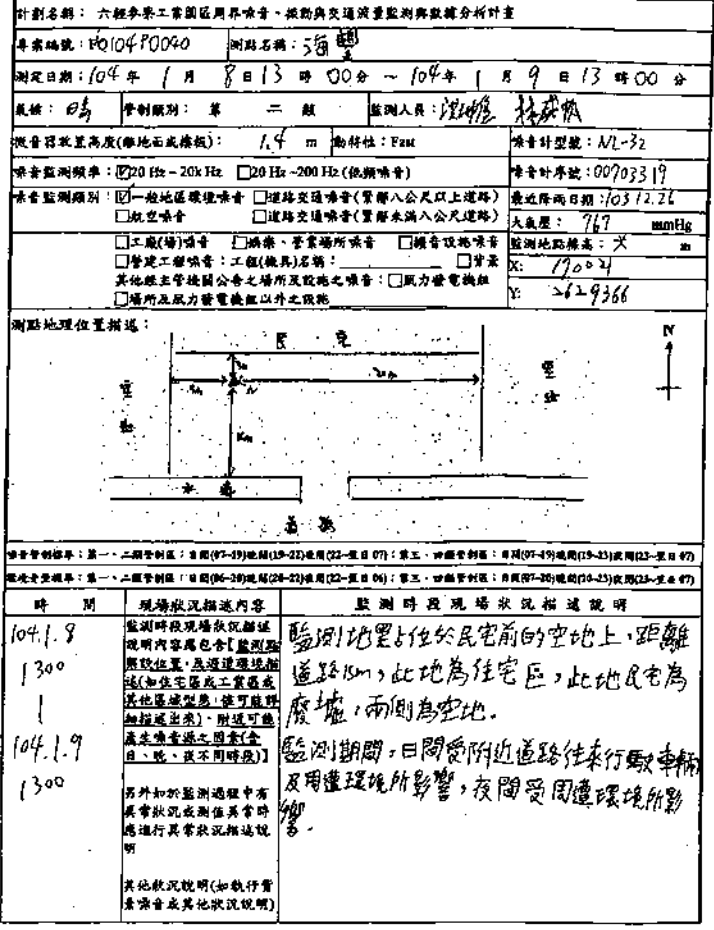 計劃名稱：六輕參寮工業園區周界噪音、振動與交通流量監測與數據分析計畫
專案編號：
測點名稱：海豐
測定日期：104年 1 月 8 日 13 時 00 分 ～ 104年 1 月 9 日 13 時 00 分
氣候：晴 管制類別：第 二 類 監測人員：
微音器放置高度(離地面或樓板)：1.4 m 動特性：Fast 噪音計型號：NL-32
噪音監測頻率：☑20 Hz – 20k Hz □20 Hz ~200 Hz (低頻噪音) 噪音計序號：00703319
噪音監測類別：☑一般地區環境噪音 □道路交通噪音(緊鄰八公尺以上道路) 最近降雨日期：103.12.26
□航空噪音 □道路交通噪音(緊鄰未滿八公尺道路) 大氣壓：767 mmHg
□工廠(場)噪音 □娛樂、營業場所噪音 □擴音設施噪音 監測地點標高：
□營建工程噪音：工程(機具)名稱： □背景 X:
其他經主管機關公告之場所及設施之噪音：□風力發電機組 Y: 2629366
□場所及風力發電機組以外之設施
測點地理位置描述：
N
民宅
空地
空地
水溝
道路
噪音管制標準：第一、二類管制區：日間(07~19)晚間(19~22)夜間(22~翌日07)；第三、四類管制區：日間(07~19)晚間(19~23)夜間(23~翌日07)
環境音量標準：第一、二類管制區：日間(06~20)晚間(20~22)夜間(22~翌日06)；第三、四類管制區：日間(07~20)晚間(20~23)夜間(23~翌日07)
時 間 現場狀況描述內容 監測時段現場狀況描述說明
104.1.8
1300
|
104.1.9
1300
監測時段現場狀況描述
說明內容應包含【監測點
架設位置，及週遭環境描
述(如住宅區或工業區或
其他區域型態，儘可能詳
細描述出來)、附近可能
產生噪音源之因素(含
日、晚、夜不同時段)】
另外如於監測過程中有
異常狀況或測值異常時
應進行異常狀況描述說
明
其他狀況說明(如執行背
景噪音或其他狀況說明)
監測地點位於民宅前的空地上，距離
道路15m，此地為住宅區，此地民宅為
廢墟，兩側為空地．
監測期間，日間受附近道路往來行駛車輛
及周遭環境所影響，夜間受周遭環境所影
響．